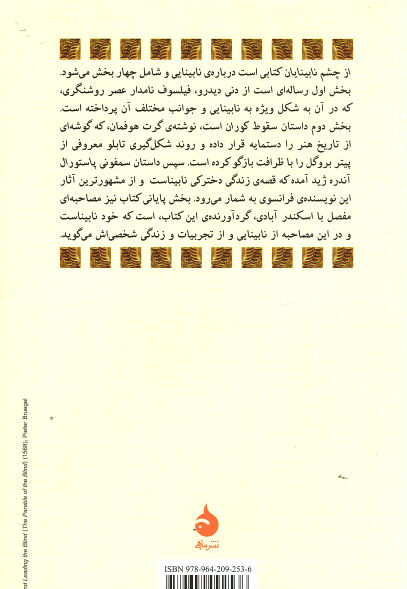 از چشم نابینایان کتابی است درباره‌ی نابینایی و شامل چهار بخش می‌شود.
بخش اول رساله‌ای است از دنی دیدرو، فیلسوف نامدار عصر روشنگری،
که در آن به شکل ویژه به نابینایی و جوانب مختلف آن پرداخته است.
بخش دوم داستان سقوط کوران است، نوشته‌ی گرت هوفمان، که گوشه‌ای
از تاریخ هنر را دستمایه قرار داده و روند شکل‌گیری تابلو معروفی از
پیتر بروگل را با ظرافت بازگو کرده است. سپس داستان سمفونی پاستورال
آندره ژید آمده که قصه‌ی زندگی دخترکی نابیناست و از مشهورترین آثار
این نویسنده‌ی فرانسوی به شمار می‌رود. بخش پایانی کتاب نیز مصاحبه‌ای
مفصل با اسکندر آبادی، گردآورنده‌ی این کتاب، است که خود نابیناست
و در این مصاحبه از نابینایی و از تجربیات و زندگی شخصی‌اش می‌گوید.
Leading the Blind (The Parable of the Blind) (1568), Pieter Bruegel
نشر ماهی
ISBN 978-964-209-253-6